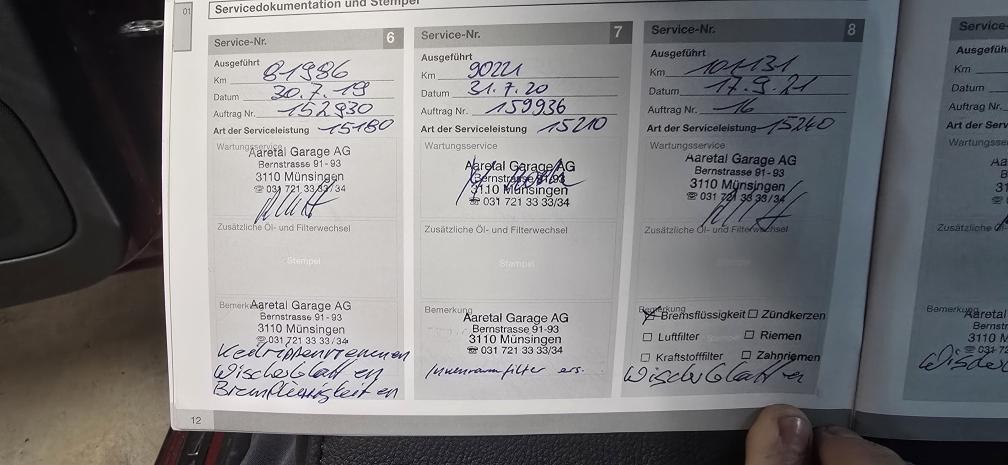 01
Servicedokumentation und Stempel
Service-Nr. 6
Ausgeführt
Km 81986
Datum 30.7.19
Auftrag Nr. 152930
Art der Serviceleistung 15180
Wartungsservice
Aaretal Garage AG
Bernstrasse 91-93
3110 Münsingen
☏ 031 721 33 33/34
Zusätzliche Öl- und Filterwechsel
Stempel
Bemerkung
Aaretal Garage AG
Bernstrasse 91-93
3110 Münsingen
☏ 031 721 33 33/34
Wischerblatt en
Bremflüssigkeit en
12
Service-Nr. 7
Ausgeführt
Km 90221
Datum 31.7.20
Auftrag Nr. 159936
Art der Serviceleistung 15210
Wartungsservice
Aaretal Garage AG
Bernstrasse 91-93
3110 Münsingen
☏ 031 721 33 33/34
Zusätzliche Öl- und Filterwechsel
Stempel
Bemerkung
Aaretal Garage AG
Bernstrasse 91-93
3110 Münsingen
☏ 031 721 33 33/34
Innenraumfilter ers.
Service-Nr. 8
Ausgeführt
Km 101131
Datum 17.9.21
Auftrag Nr. 16
Art der Serviceleistung 15240
Wartungsservice
Aaretal Garage AG
Bernstrasse 91-93
3110 Münsingen
☏ 031 721 33 33/34
Zusätzliche Öl- und Filterwechsel
Stempel
Bemerkung
☒ Bremsflüssigkeit ☐ Zündkerzen
☐ Luftfilter ☐ Riemen
☐ Kraftstofffilter ☐ Zahnriemen
Wischerblatt en
Service-
Ausgeführt
Km
Datum
Auftrag Nr.
Art der Servic
Wartungsse
Zusätzliche Öl-
Bemerkung
Aaretal